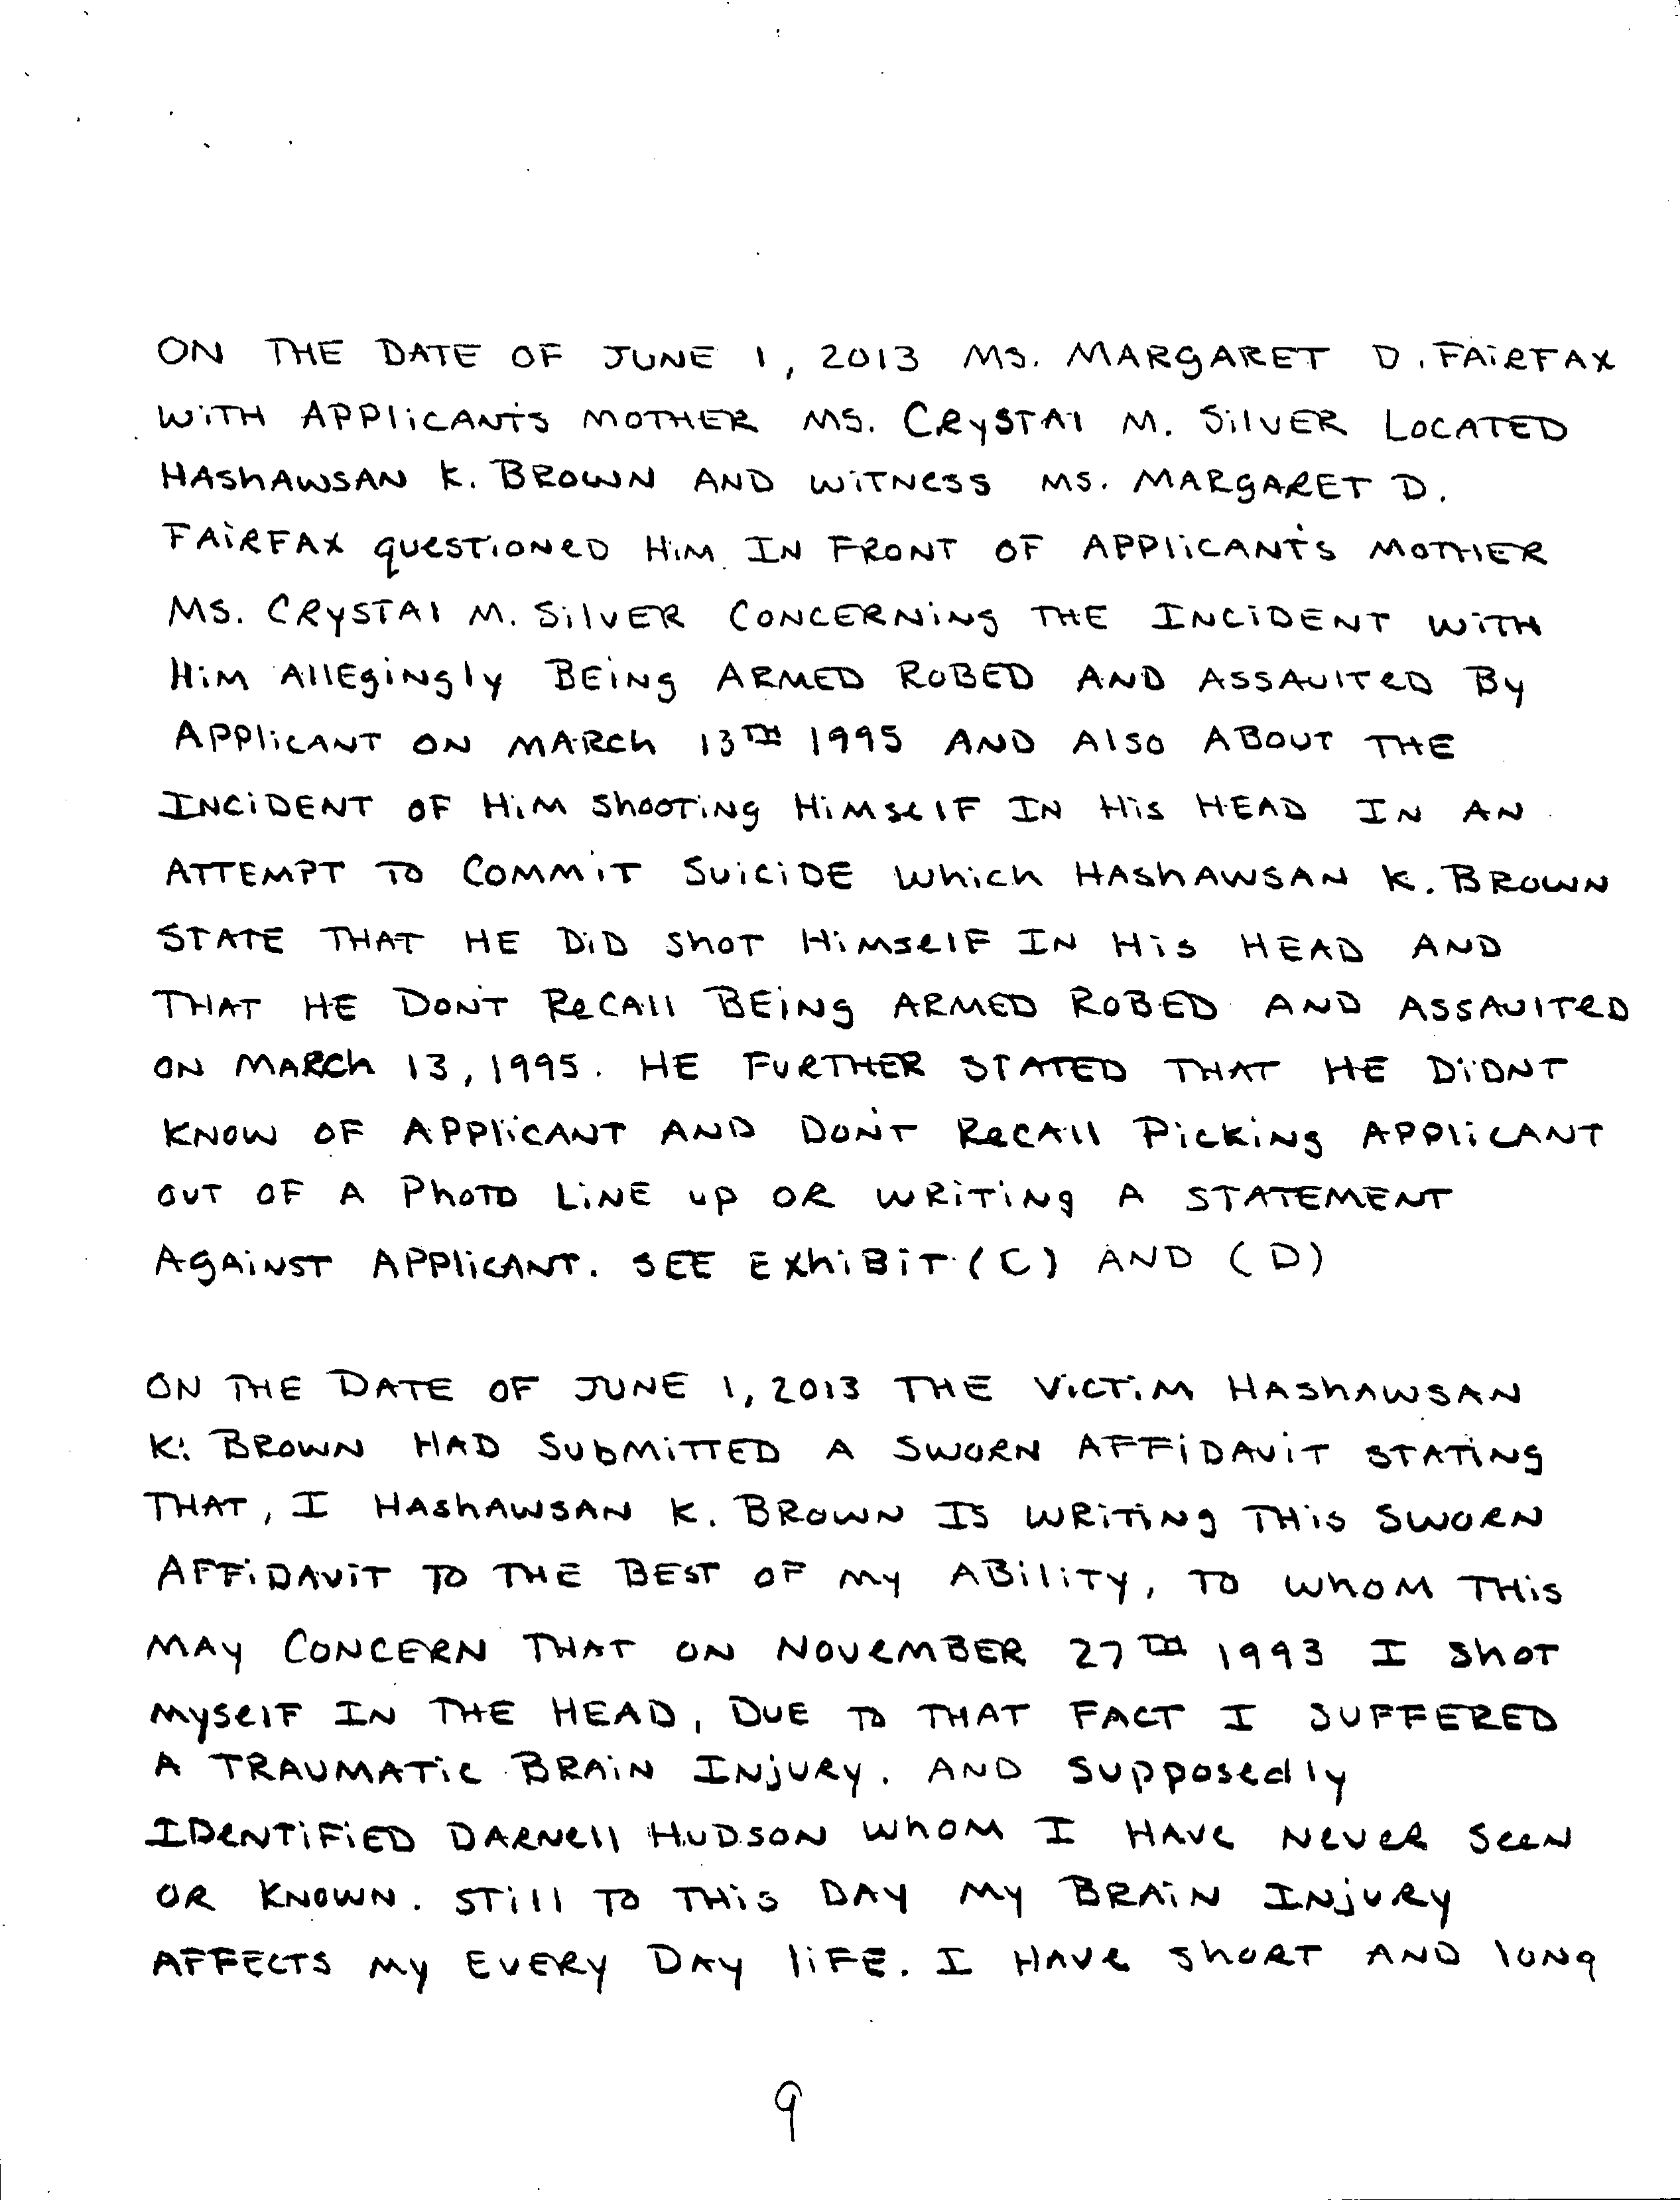 ON THE DATE OF JUNE 1, 2013 MS. MARGARET D. FAIRFAX
WITH APPLICANT'S MOTHER MS. CRYSTAL M. SILVER LOCATED
HASHAWSAN K. BROWN AND WITNESS MS. MARGARET D.
FAIRFAX QUESTIONED HIM IN FRONT OF APPLICANT'S MOTHER
MS. CRYSTAL M. SILVER CONCERNING THE INCIDENT WITH
HIM ALLEGINGLY BEING ARMED ROBED AND ASSAULTED BY
APPLICANT ON MARCH 13TH 1995 AND ALSO ABOUT THE
INCIDENT OF HIM SHOOTING HIMSELF IN HIS HEAD IN AN
ATTEMPT TO COMMIT SUICIDE WHICH HASHAWSAN K. BROWN
STATE THAT HE DID SHOT HIMSELF IN HIS HEAD AND
THAT HE DON'T RECALL BEING ARMED ROBED AND ASSAULTED
ON MARCH 13, 1995. HE FURTHER STATED THAT HE DIDNT
KNOW OF APPLICANT AND DON'T RECALL PICKING APPLICANT
OUT OF A PHOTO LINE UP OR WRITING A STATEMENT
AGAINST APPLICANT. SEE EXHIBIT (C) AND (D)
ON THE DATE OF JUNE 1, 2013 THE VICTIM HASHAWSAN
K. BROWN HAD SUBMITTED A SWORN AFFIDAVIT STATING
THAT, I HASHAWSAN K. BROWN IS WRITING THIS SWORN
AFFIDAVIT TO THE BEST OF MY ABILITY, TO WHOM THIS
MAY CONCERN THAT ON NOVEMBER 27TH 1993 I SHOT
MYSELF IN THE HEAD, DUE TO THAT FACT I SUFFERED
A TRAUMATIC BRAIN INJURY. AND SUPPOSEDLY
IDENTIFIED DARNELL HUDSON WHOM I HAVE NEVER SEEN
OR KNOWN. STILL TO THIS DAY MY BRAIN INJURY
AFFECTS MY EVERY DAY LIFE. I HAVE SHORT AND LONG
9